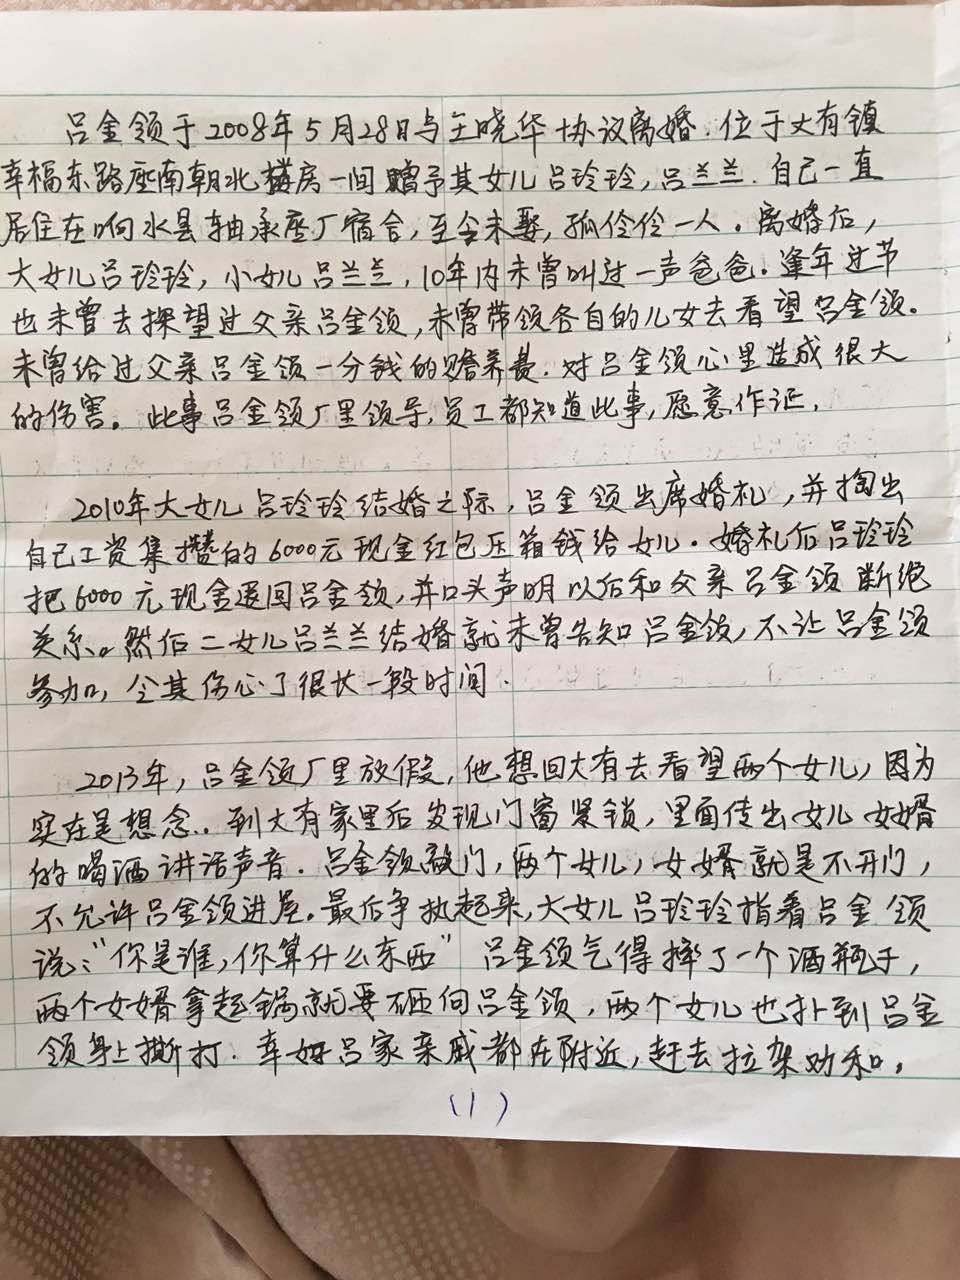 吕金领于2008年5月28日与王晓华协议离婚.位于大有镇
幸福东路座南朝北楼房一间赠予其女儿吕玲玲,吕兰兰.自己一直
居住在响水县轴承座厂宿舍,至今未娶,孤伶伶一人。离婚后,
大女儿吕玲玲,小女儿吕兰兰,10年内未曾叫过一声爸爸。逢年过节
也未曾去探望过父亲吕金领,未曾带领各自的儿女去看望吕金领。
未曾给过父亲吕金领一分钱的赡养费.对吕金领心里造成很大
的伤害。此事吕金领厂里领导,员工都知道此事,愿意作证.
2010年大女儿吕玲玲结婚之际,吕金领出席婚礼,并掏出
自己工资集攒的6000元现金红包压箱钱给女儿。婚礼后吕玲玲
把6000元现金退回吕金领,并口头声明以后和父亲吕金领断绝
关系。然后二女儿吕兰兰结婚就未曾告知吕金领,不让吕金领
参加,令其伤心了很长一段时间.
2013年,吕金领厂里放假,他想回大有去看望两个女儿,因为
实在是想念..到大有家里后发现门窗紧锁,里面传出女儿女婿
的喝酒讲话声音.吕金领敲门,两个女儿,女婿就是不开门,
不允许吕金领进屋。最后争执起来,大女儿吕玲玲指着吕金领
说:"你是谁,你算什么东西"吕金领气得摔了一个酒瓶子,
两个女婿拿起锅就要砸向吕金领,两个女儿也扑到吕金
领身上撕打.幸好吕家亲戚都在附近,赶去拉架劝和。
(1)